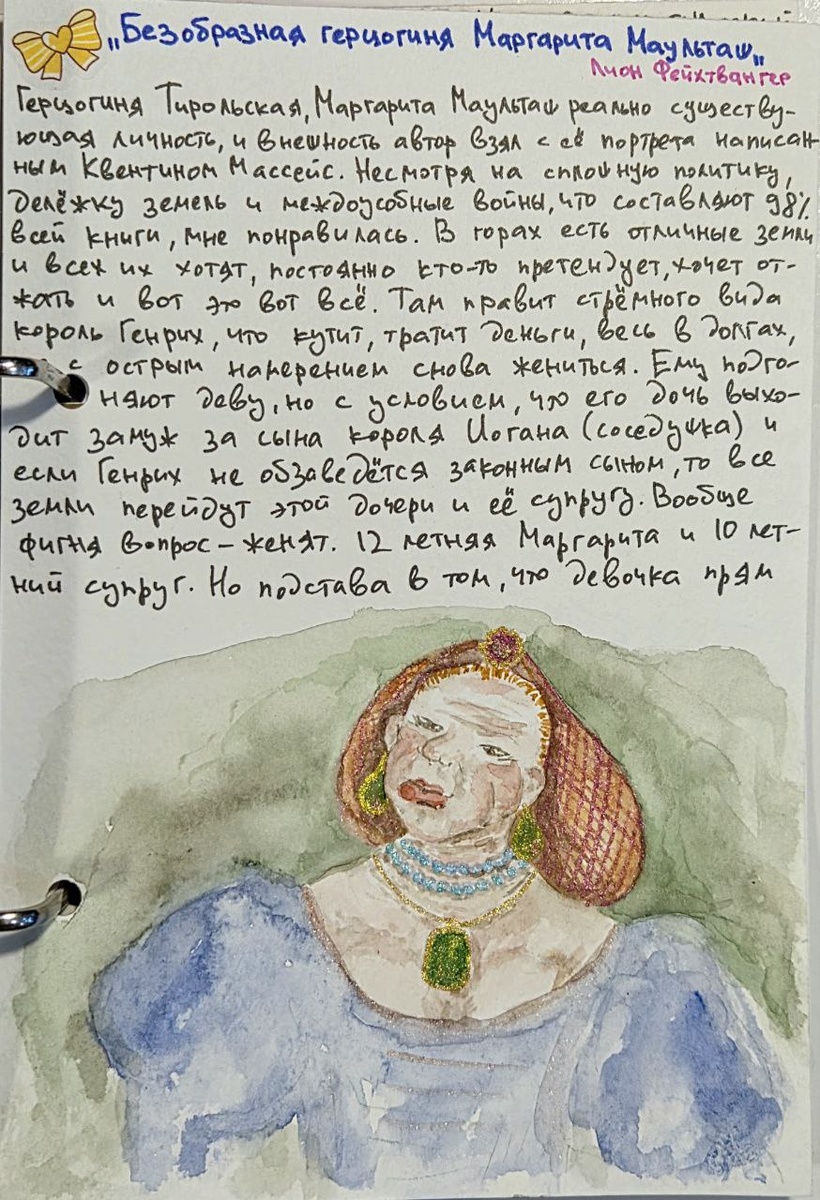 „Безобразная герцогиня Маргарита Маульташ„
Лион Фейхтвангер
Герцогиня Тирольская, Маргарита Маульташ реально существу-
ющая личность, и внешность автор взял с её портрета написан-
ным Квентином Массейс. Несмотря на сплошную политику,
делёжку земель и междоусобные войны, что составляют 98%
всей книги, мне понравилась. В горах есть отличные земли
и всех их хотят, постоянно кто-то претендует, хочет от-
жать и вот это вот всё. Там правит стрёмного вида
король Генрих, что кутит, тратит деньги, весь в долгах,
с острым намерением снова жениться. Ему подго-
няют деву, но с условием, что его дочь выхо-
дит замуж за сына короля Иогана (соседушка) и
если Генрих не обзаведётся законным сыном, то все
земли перейдут этой дочери и её супругу. Вообще
фигня вопрос – женят. 12 летняя Маргарита и 10 лет-
ний супруг. Но подстава в том, что девочка прям